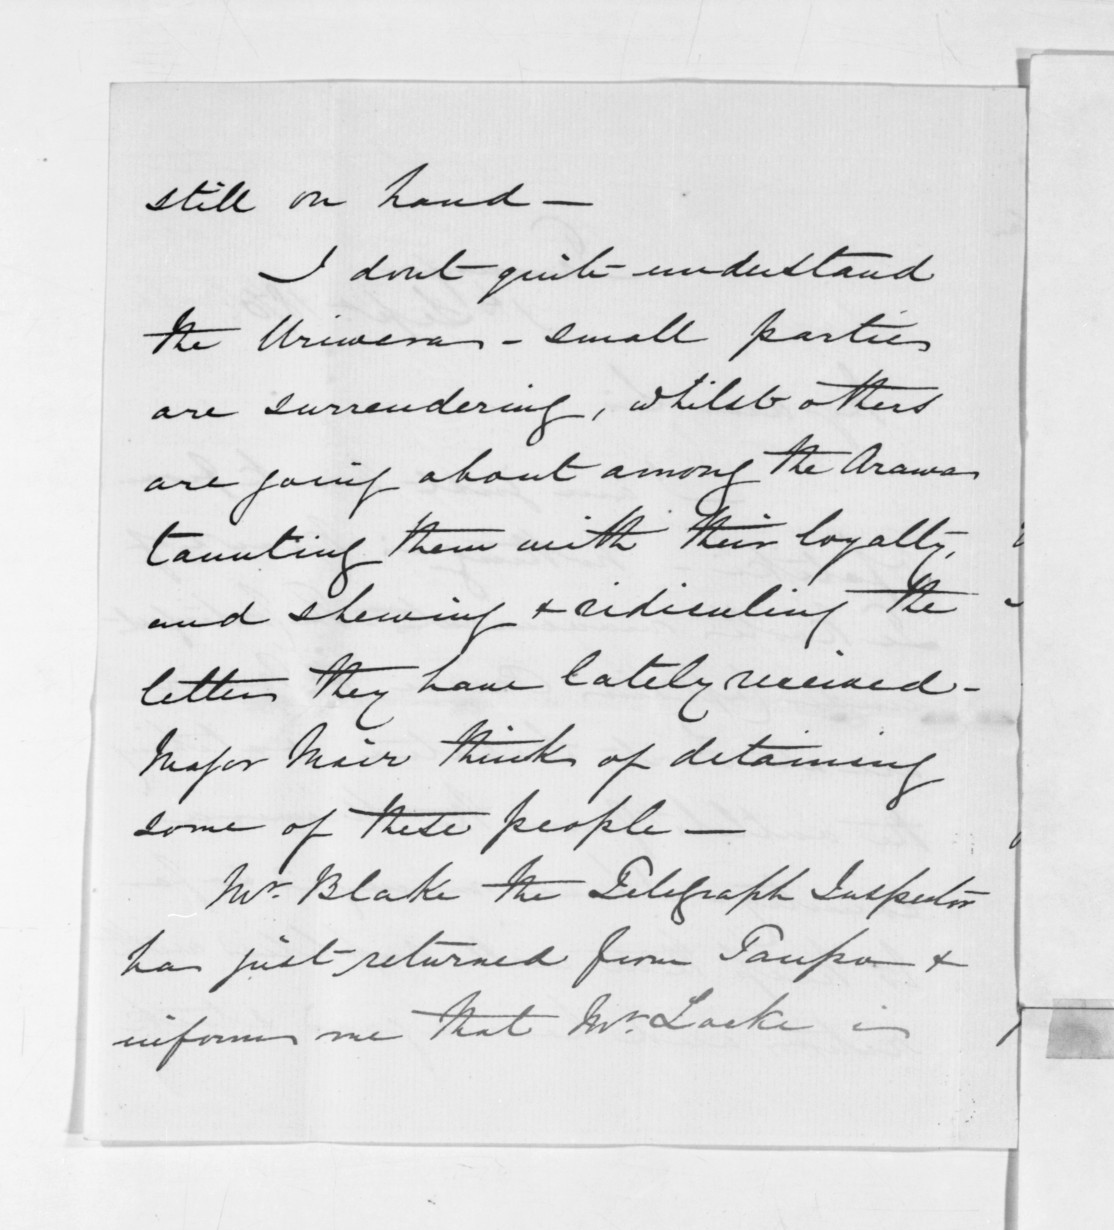 still on hand —
I dont quite understand
the Uriweras - small parties
are surrendering, whilst others
are going about among the Arawas
taunting them with their loyalty,
and shewing & ridiculing the
letters they have lately received -
Major Mair thinks of detaining
some of these people —
Mr. Blake the Telegraph Inspector
has just returned from Taupo &
informs me that Mr. Locke is